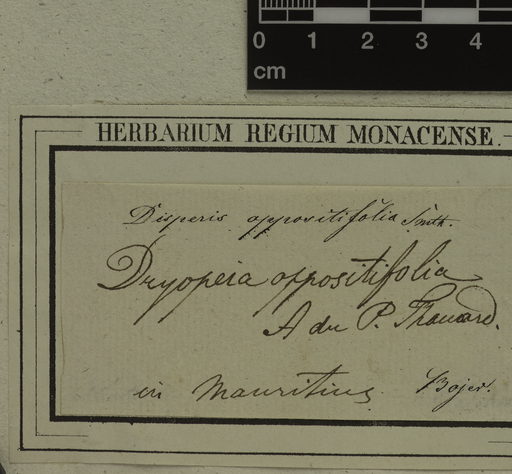 0 1 2 3 4
cm
HERBARIUM REGIUM MONACENSE.
Disperis oppositifolia Smth.
Dryopeia oppositifolia
A du P. Thouard.
in Mauritius Bojer.